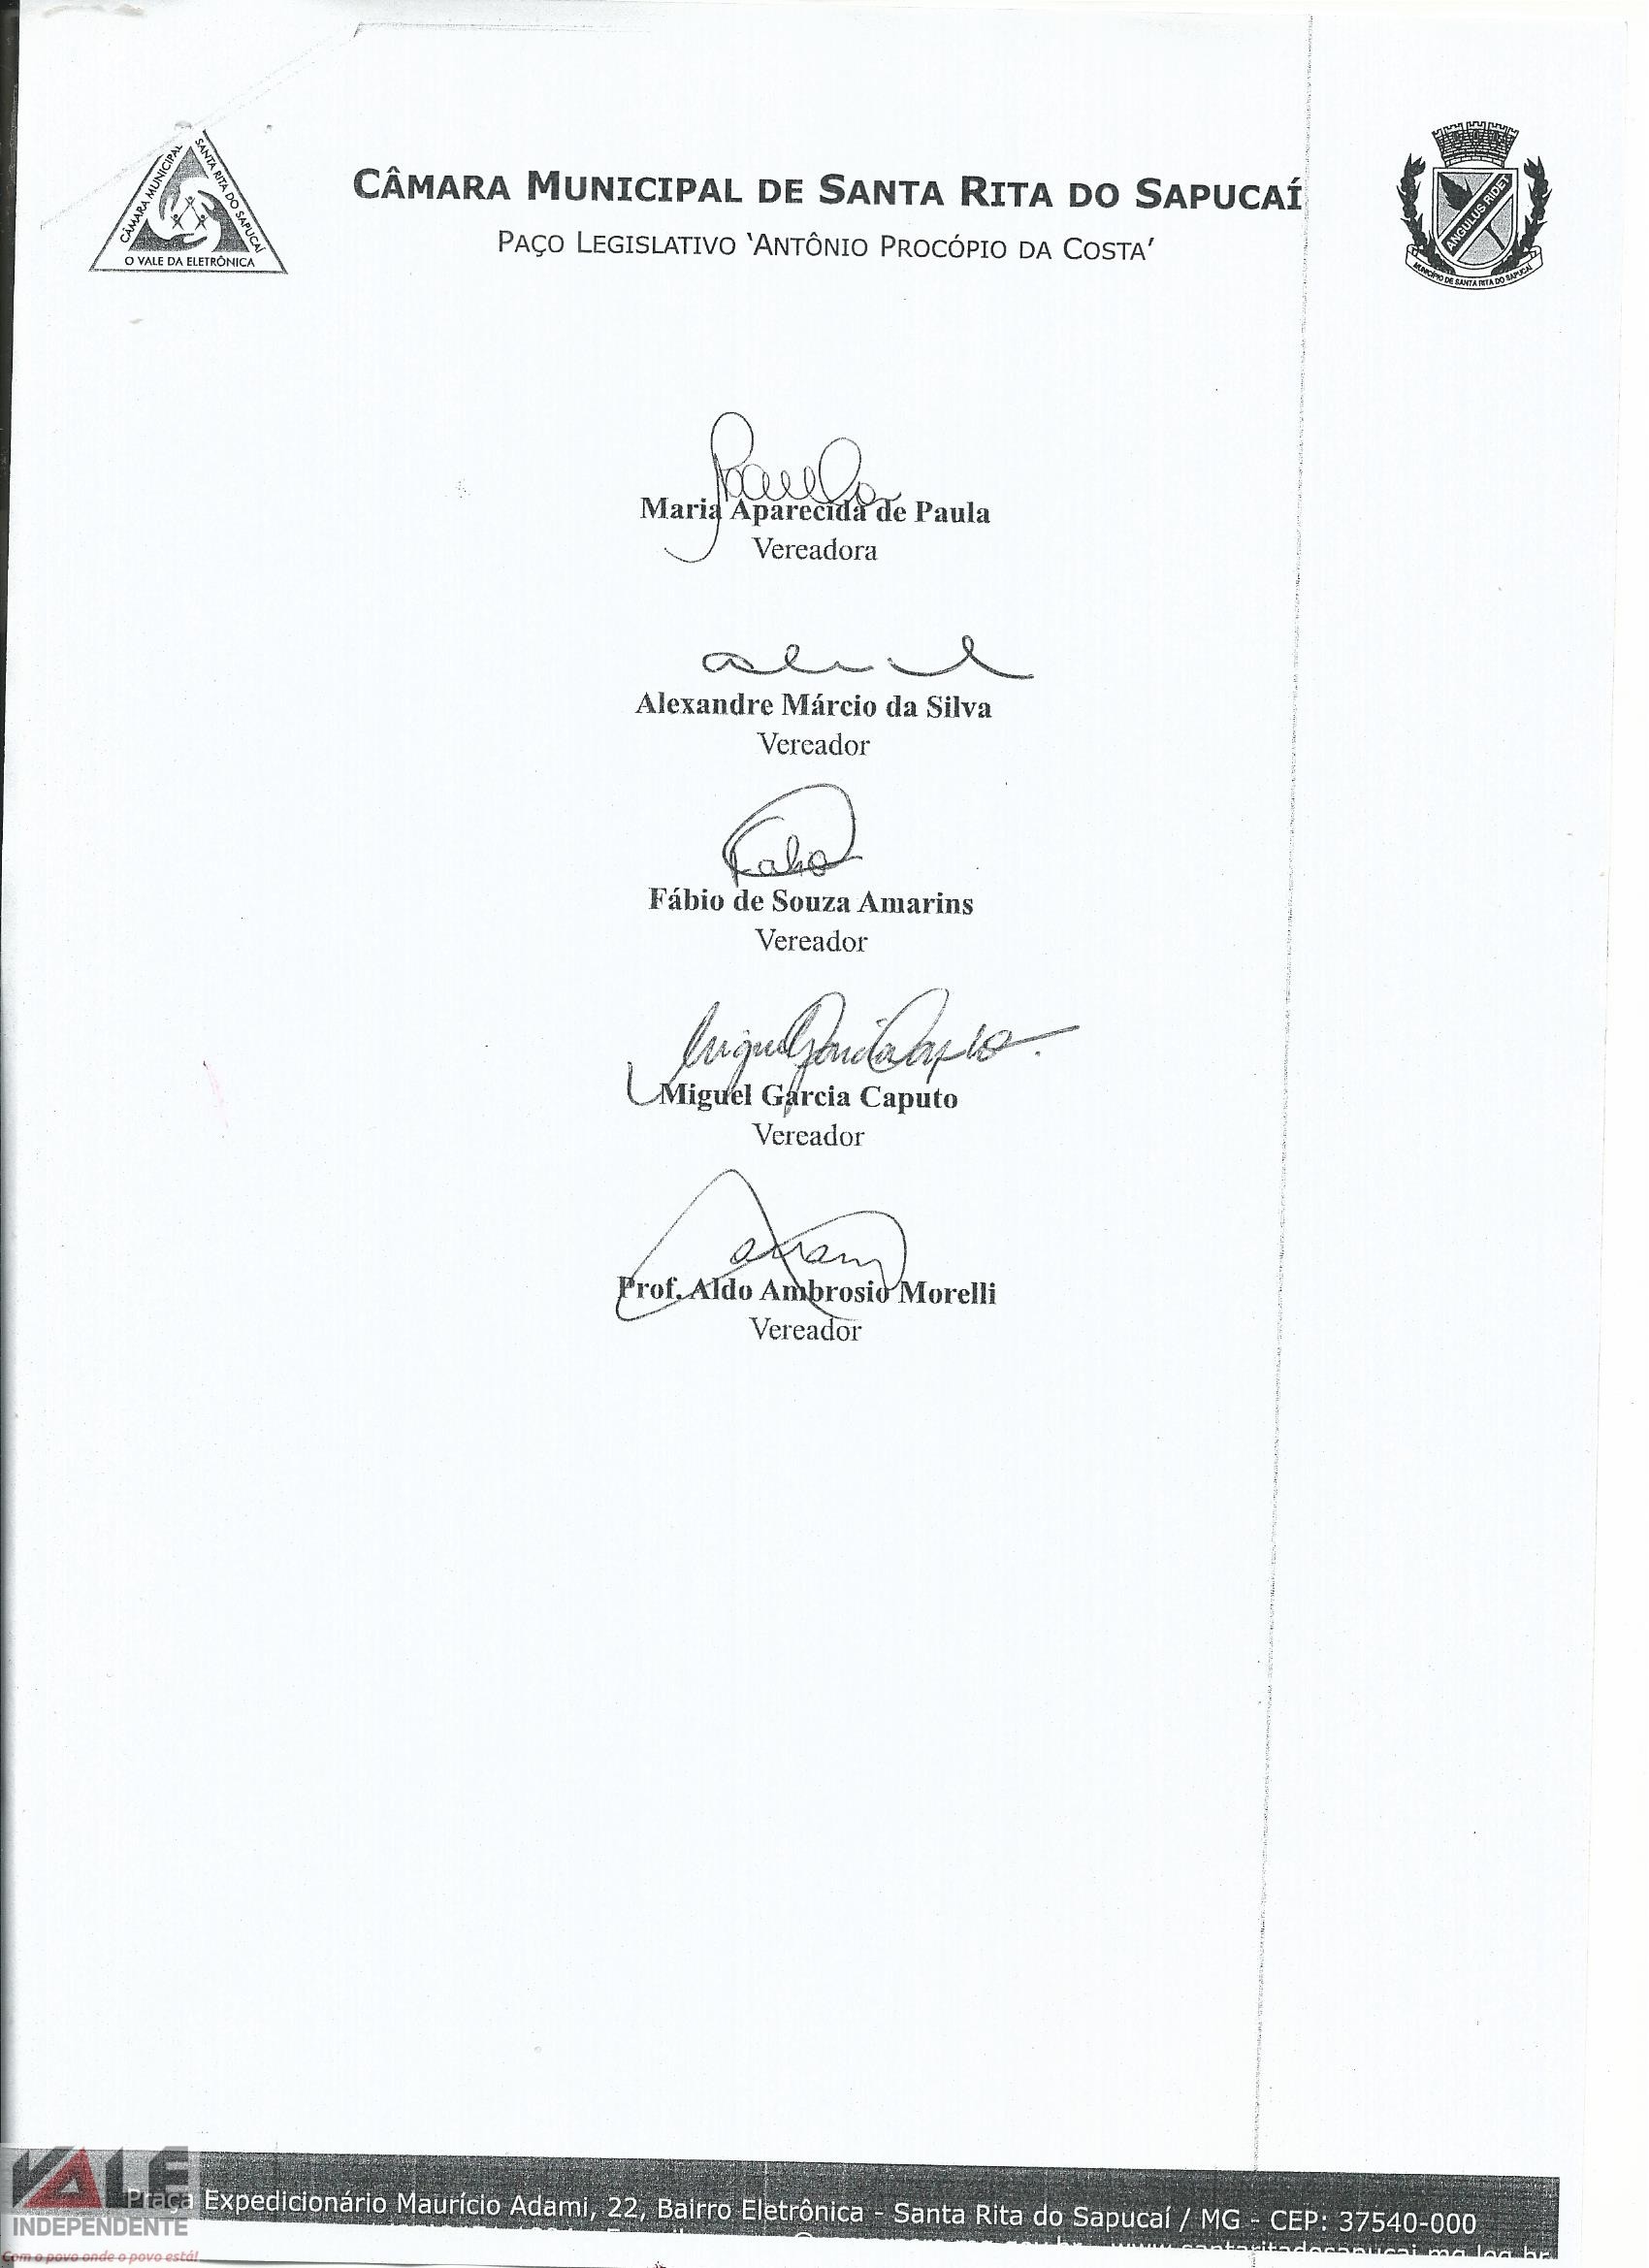 CÂMARA MUNICIPAL
SANTA RITA DO SAPUCAÍ
O VALE DA ELETRÔNICA
CÂMARA MUNICIPAL DE SANTA RITA DO SAPUCAÍ
PAÇO LEGISLATIVO 'ANTÔNIO PROCÓPIO DA COSTA'
ANGULUS RIDET
MUNICÍPIO DE SANTA RITA DO SAPUCAÍ
Maria Aparecida de Paula
Vereadora
Alexandre Márcio da Silva
Vereador
Fabio
Fábio de Souza Amarins
Vereador
Miguel Garcia Caputo
Miguel Garcia Caputo
Vereador
Prof. Aldo Ambrosio Morelli
Vereador
Praça Expedicionário Maurício Adami, 22, Bairro Eletrônica - Santa Rita do Sapucaí / MG - CEP: 37540-000
www.santaritadosapucai.mg.leg.br
VALE
INDEPENDENTE
Com o povo onde o povo está!